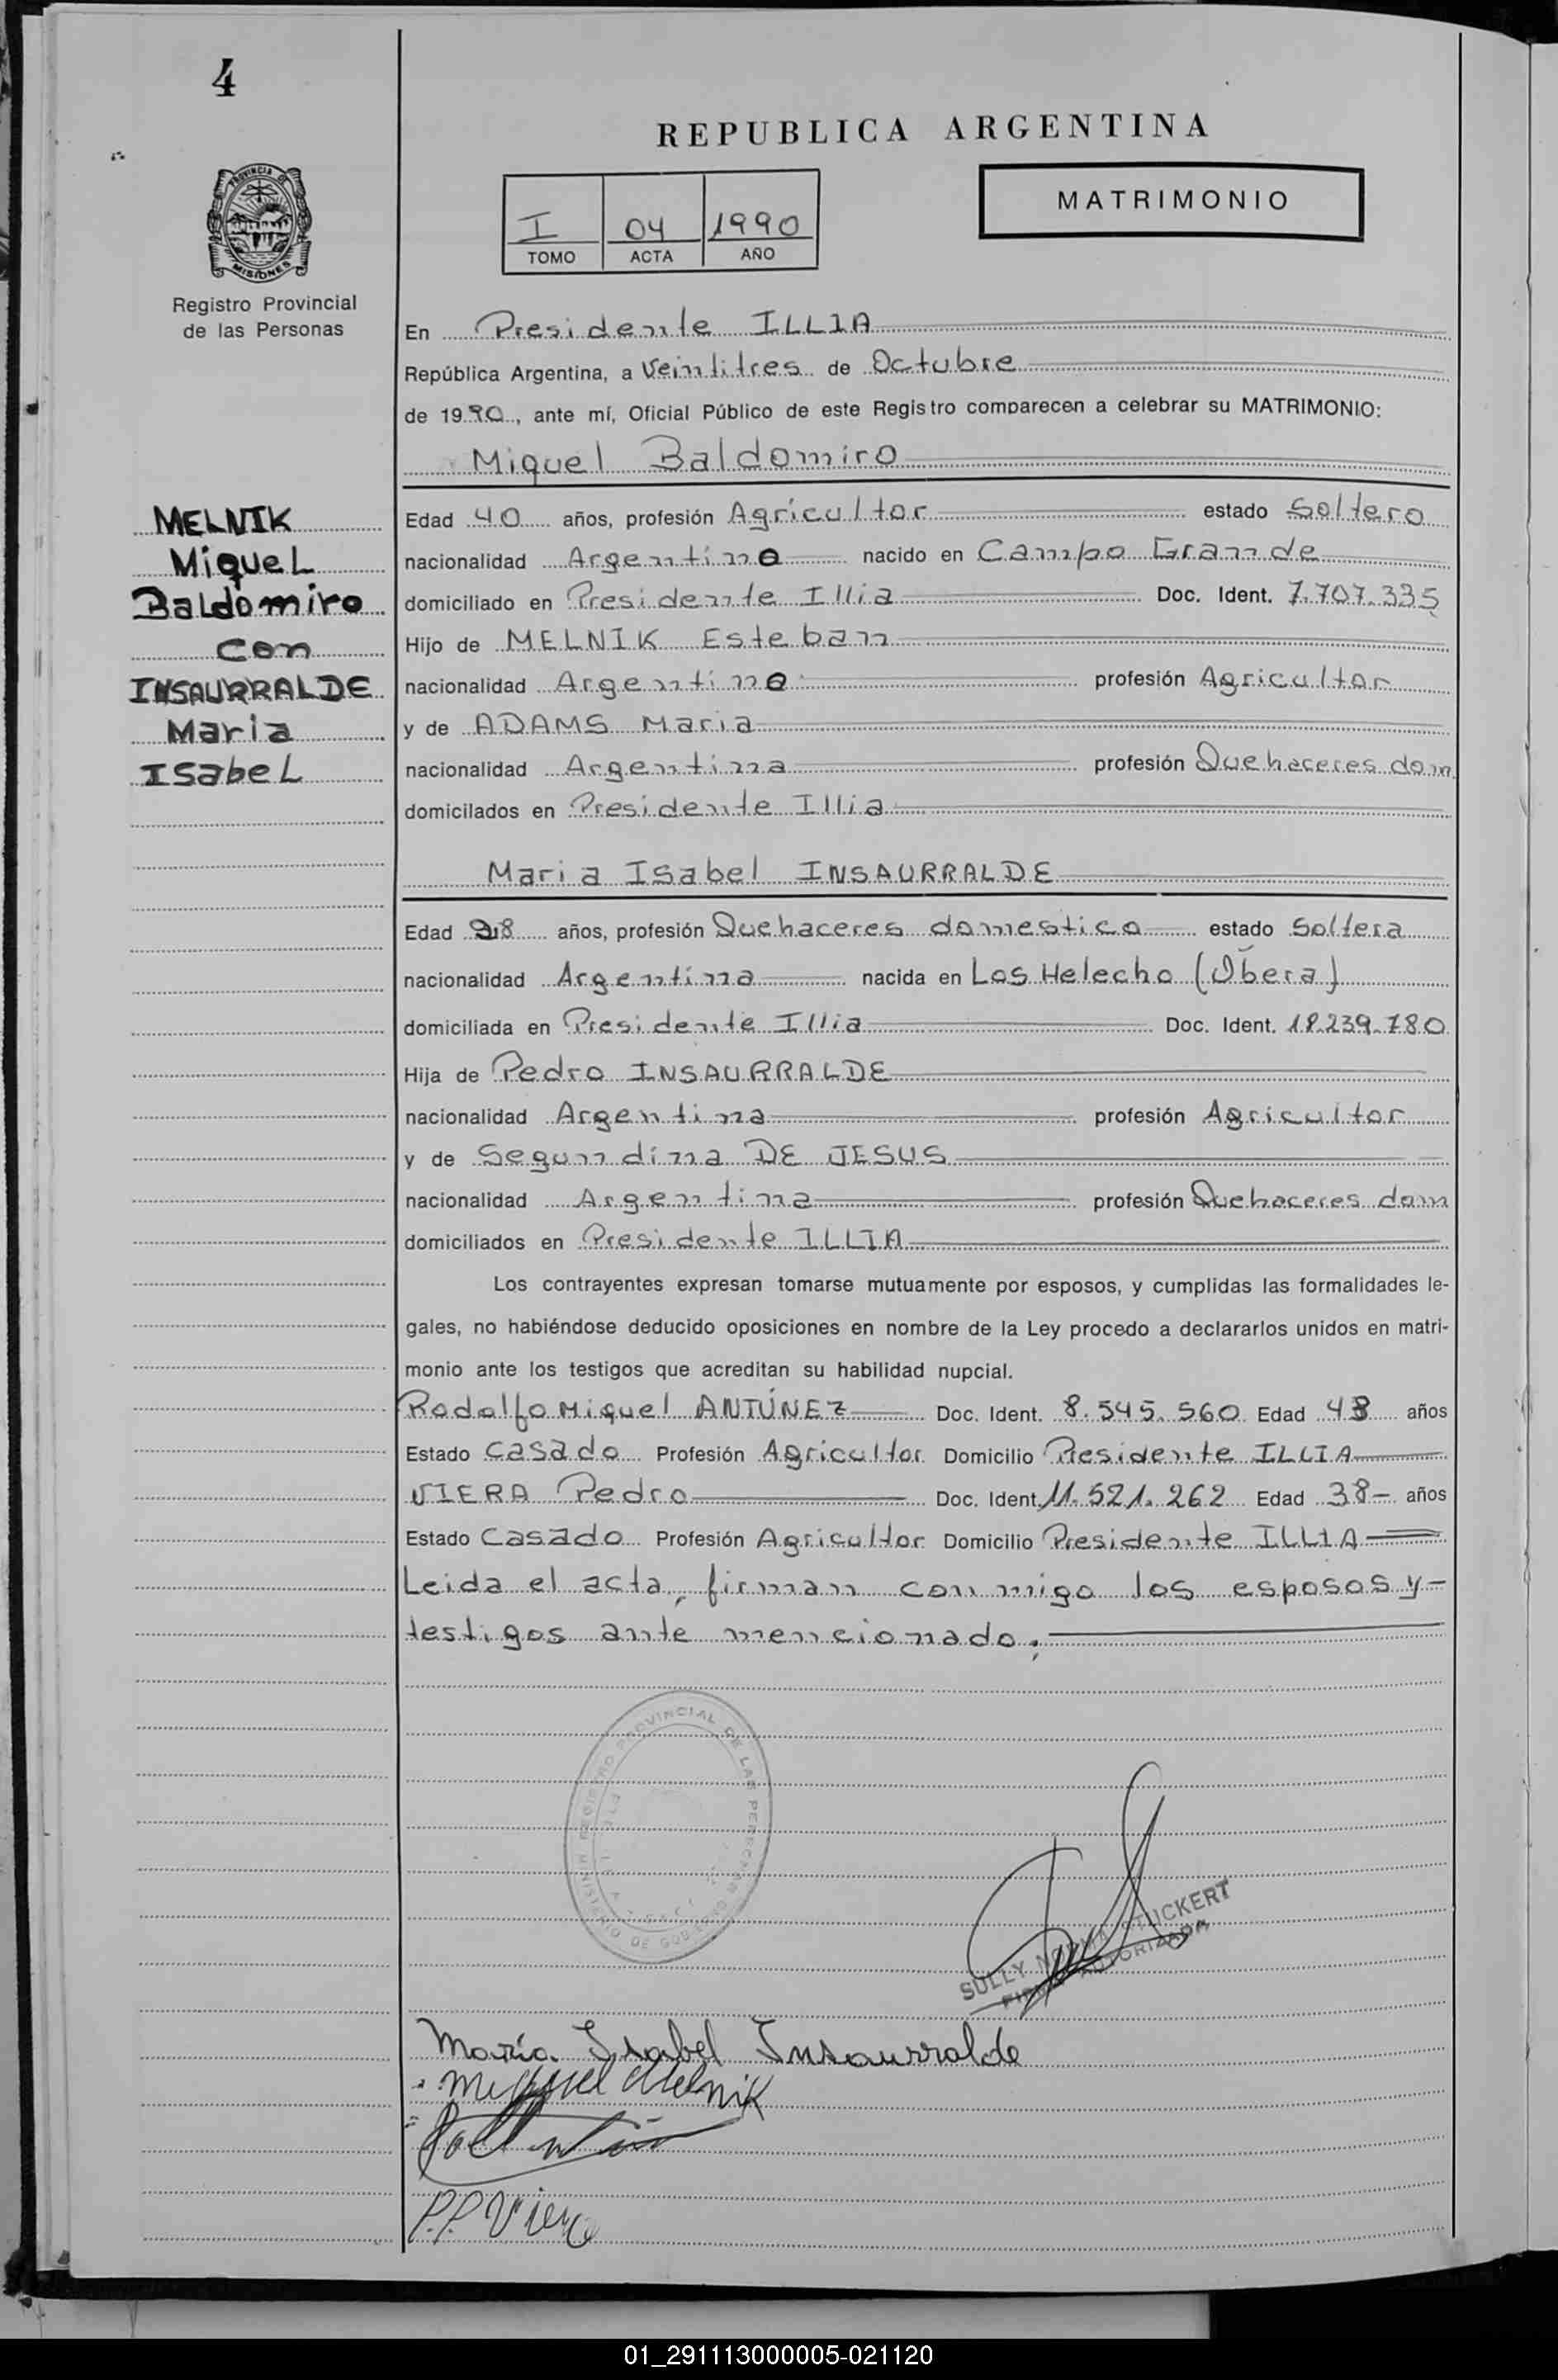 4
REPUBLICA ARGENTINA
MATRIMONIO
I 04 1990
TOMO ACTA AÑO
PROVINCIA DE
MISIONES
Registro Provincial
de las Personas
MELNIK
Miguel
Baldomiro
con
INSAURRALDE
Maria
Isabel
En Presidente ILLIA
República Argentina, a Veintitres de Octubre
de 1990, ante mí, Oficial Público de este Registro comparecen a celebrar su MATRIMONIO:
Miguel Baldomiro
Edad 40 años, profesión Agricultor estado Soltero
nacionalidad Argentino nacido en Campo Grande
domiciliado en Presidente Illia Doc. Ident. 7.707.335
Hijo de MELNIK Esteban
nacionalidad Argentino profesión Agricultor
y de ADAMS Maria
nacionalidad Argentina profesión Quehaceres dom
domicilados en Presidente Illia
Maria Isabel INSAURRALDE
Edad años, profesión Quehaceres domestico estado Soltera
nacionalidad Argentina nacida en Los Helecho (Obera)
domiciliada en Presidente Illia Doc. Ident. 18.239.780
Hija de Pedro INSAURRALDE
nacionalidad Argentina profesión Agricultor
y de Segundina DE JESUS
nacionalidad Argentina profesión Quehaceres dom
domiciliados en Presidente ILLIA
Los contrayentes expresan tomarse mutuamente por esposos, y cumplidas las formalidades le-
gales, no habiéndose deducido oposiciones en nombre de la Ley procedo a declararlos unidos en matri-
monio ante los testigos que acreditan su habilidad nupcial.
Rodolfo Miguel ANTÚNEZ Doc. Ident. 8.545.560 Edad 43 años
Estado Casado Profesión Agricultor Domicilio Presidente ILLIA
VIERA Pedro Doc. Ident. 11.521.262 Edad 38- años
Estado Casado Profesión Agricultor Domicilio Presidente ILLIA
Leida el acta, firman con migo los esposos y-
testigos ante mencionado.
REGISTRO PROVINCIAL DE LAS PERSONAS
MINISTERIO DE GOBIERNO
SULLY NORMA STUCKERT
FIRMA AUTORIZADA
María Isabel Insaurralde
Miguel Melnik
P.P. Viera
01_291113000005-021120